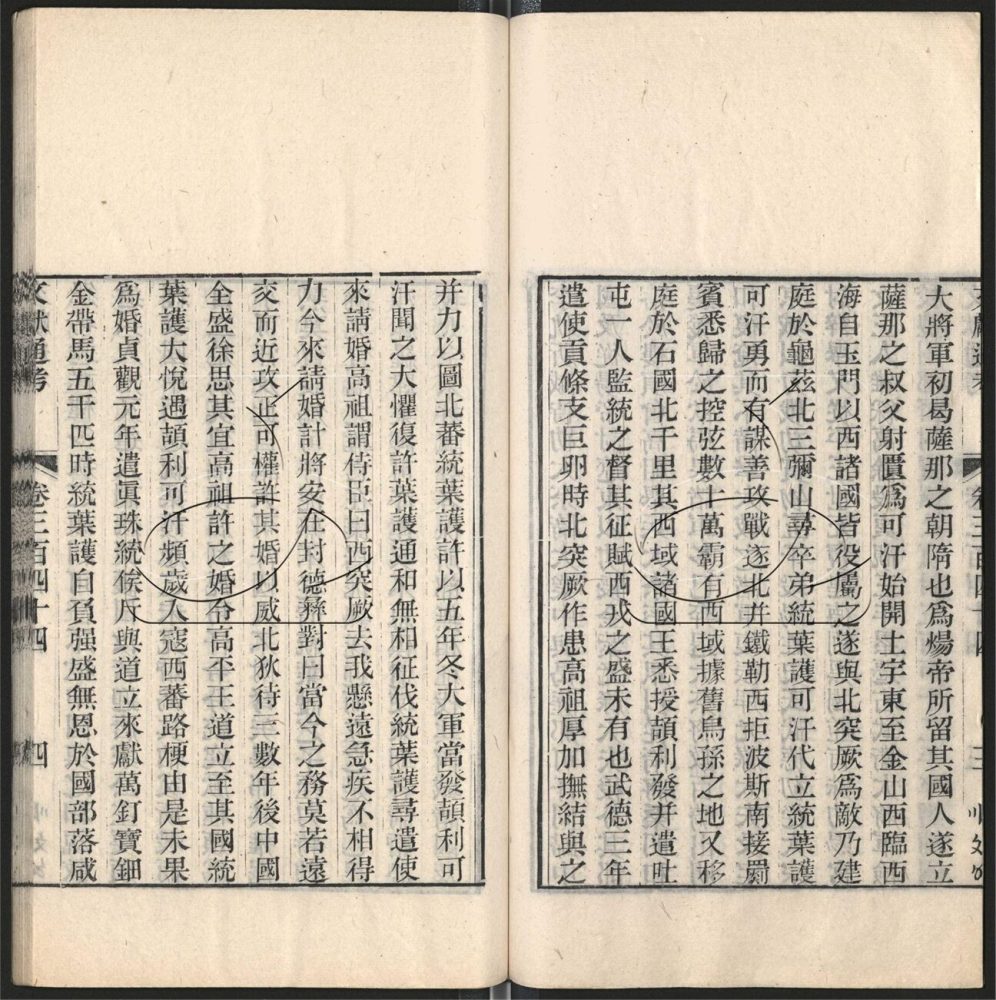 文獻通考 卷三百四十四 三
大將軍初曷薩那之朝隋也爲煬帝所留其國人遂立
薩那之叔父射匱爲可汗始開土宇東至金山西臨西
海自玉門以西諸國皆役屬之遂與北突厥爲敵乃建
庭於龜茲北三彌山尋卒弟統葉護可汗代立統葉護
可汗勇而有謀善攻戰遂北并鐵勒西拒波斯南接罽
賓悉歸之控弦數十萬霸有西域據舊烏孫之地又移
庭於石國北千里其西域諸國王悉授頡利發并遣吐
屯一人監統之督其征賦西戎之盛未有也武德三年
遣使貢條支巨卵時北突厥作患高祖厚加撫結與之
并力以圖北蕃統葉護許以五年冬大軍當發頡利可
汗聞之大懼復許葉護通和無相征伐統葉護尋遣使
來請婚高祖謂侍臣曰西突厥去我懸遠急疾不相得
力今來請婚計將安在封德彝對曰當今之務莫若遠
交而近攻正可權許其婚以威北狄待三數年後中國
全盛徐思其宜高祖許之婚令高平王道立至其國統
葉護大悅遇頡利可汗頻歲入寇西蕃路梗由是未果
爲婚貞觀元年遣眞珠統俟斤與道立來獻萬釘寶鈿
金帶馬五千匹時統葉護自負强盛無恩於國部落咸
文獻通考 卷三百四十四 四